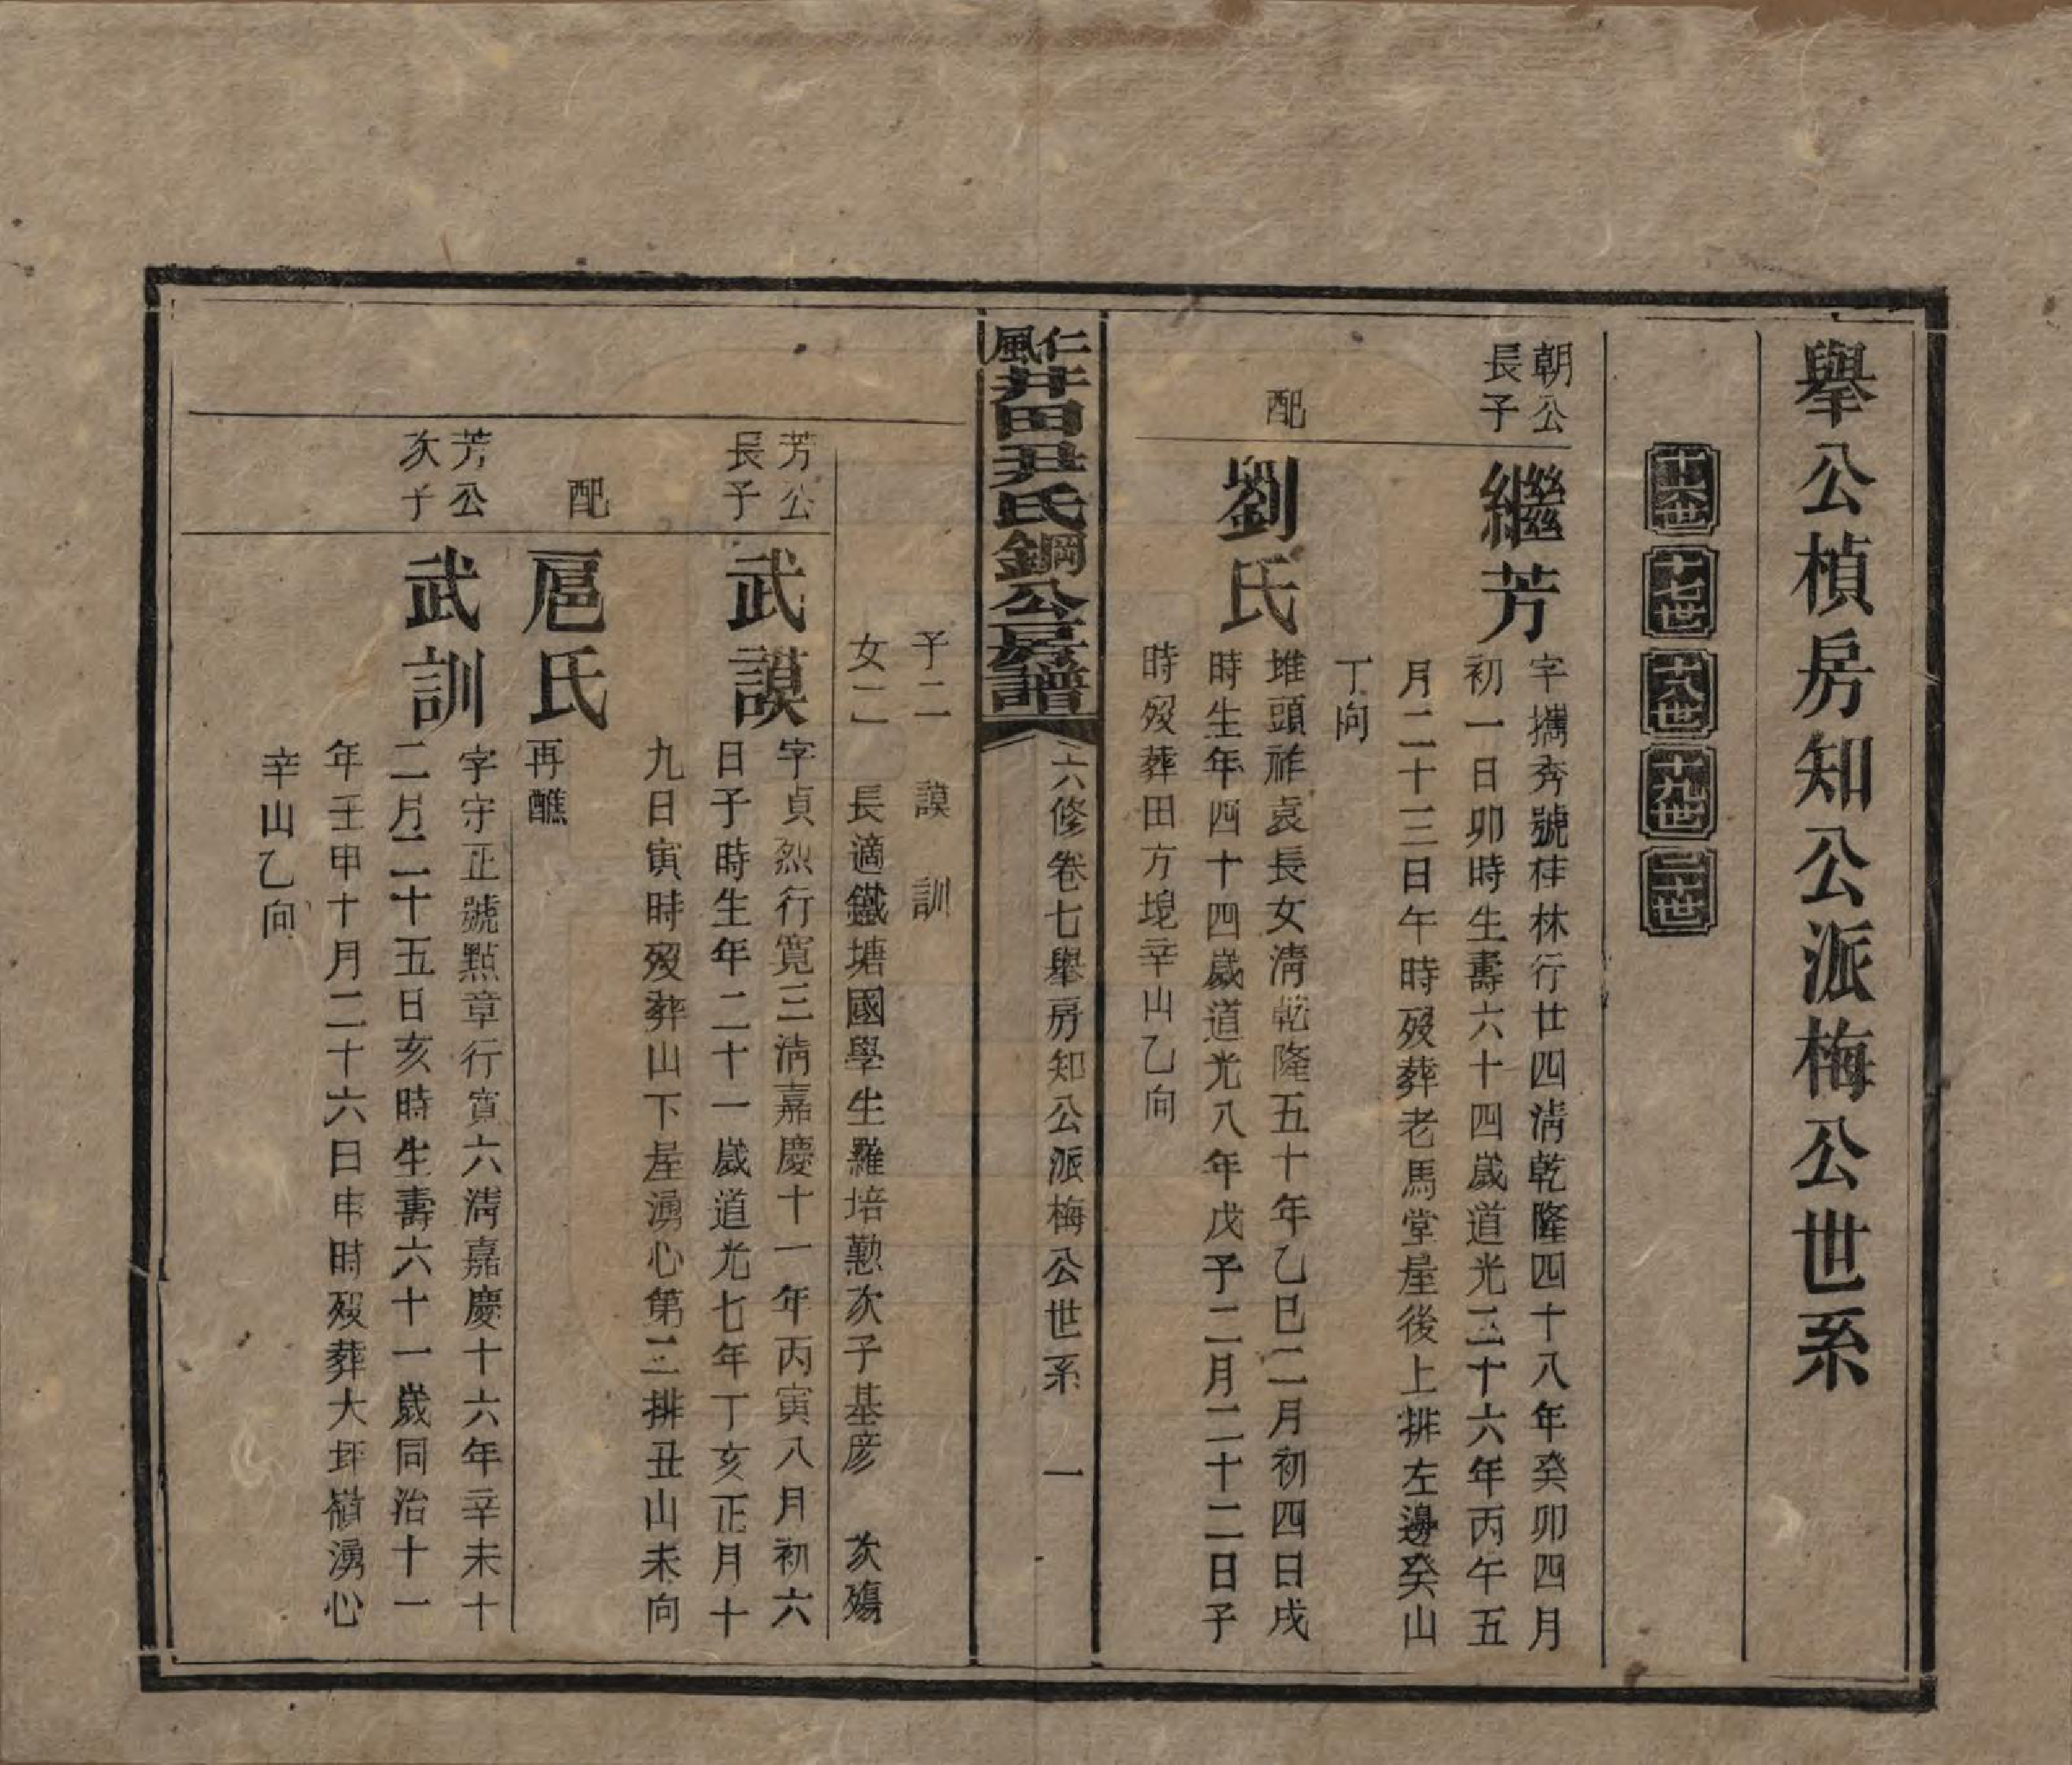 舉公楨房知公派梅公世系
十六世 十七世 十八世 十九世 二十世
朝公
長子
繼芳
字攜秀號桂林行廿四淸乾隆四十八年癸卯四月
初一日卯時生壽六十四歲道光二十六年丙午五
月二十三日午時歿葬老馬堂屋後上排左邊癸山
丁向
配
劉氏
堆頭祚袁長女淸乾隆五十年乙巳二月初四日戌
時生年四十四歲道光八年戊子二月二十二日子
時歿葬田方堄辛山乙向
仁風井田尹氏鋼公房譜
六修卷七舉房知公派梅公世系 一
子二 謨 訓
女二 長適鐵塘國學生羅培懃次子基彦 次殤
芳公
長子
武謨
字貞烈行寬三淸嘉慶十一年丙寅八月初六
日子時生年二十一歲道光七年丁亥正月十
九日寅時歿葬山下屋湧心第二排丑山未向
配
扈氏
再醮
芳公
次子
武訓
字守正號點章行寬六淸嘉慶十六年辛未十
二月二十五日亥時生壽六十一歲同治十一
年壬申十月二十六日申時歿葬大坪嶺湧心
辛山乙向